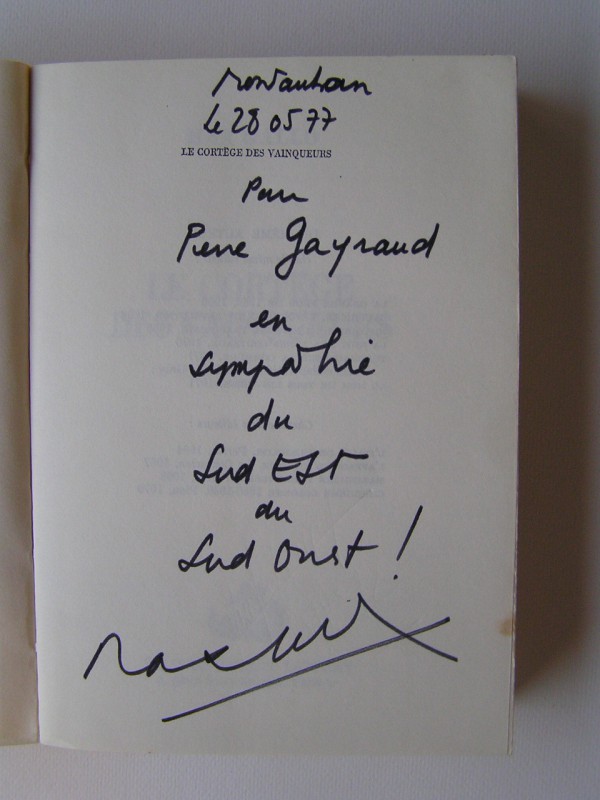 Montauban
le 28 05 77
LE CORTÈGE DES VAINQUEURS
Pour
Pierre Gayraud
en
sympathie
du
Sud EST
du
Sud Ouest !